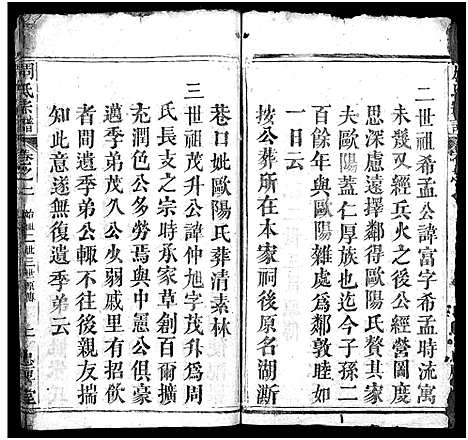 二世祖希孟公諱富字希孟時流寓
未幾又經兵火之後公經營圖度
思深慮遠擇鄰得歐陽氏贅其家
夫歐陽蓋仁厚族也迄今子孫二
百餘年與歐陽雜處爲鄰敦睦如
一日云
按公葬所在本家祠後原名湖漸
巷口妣歐陽氏葬清素林
三世祖茂升公諱仲旭字茂升爲周
氏長支之宗時承家草創百爾擴
充潤色公多勞焉與中憲公俱豪
邁季弟茂八公少弱戚里有招飲
者間遺季弟公輒不往後親友揣
知此意遂無復遺季弟云
周氏宗譜
卷之二
始祖二世三世
上